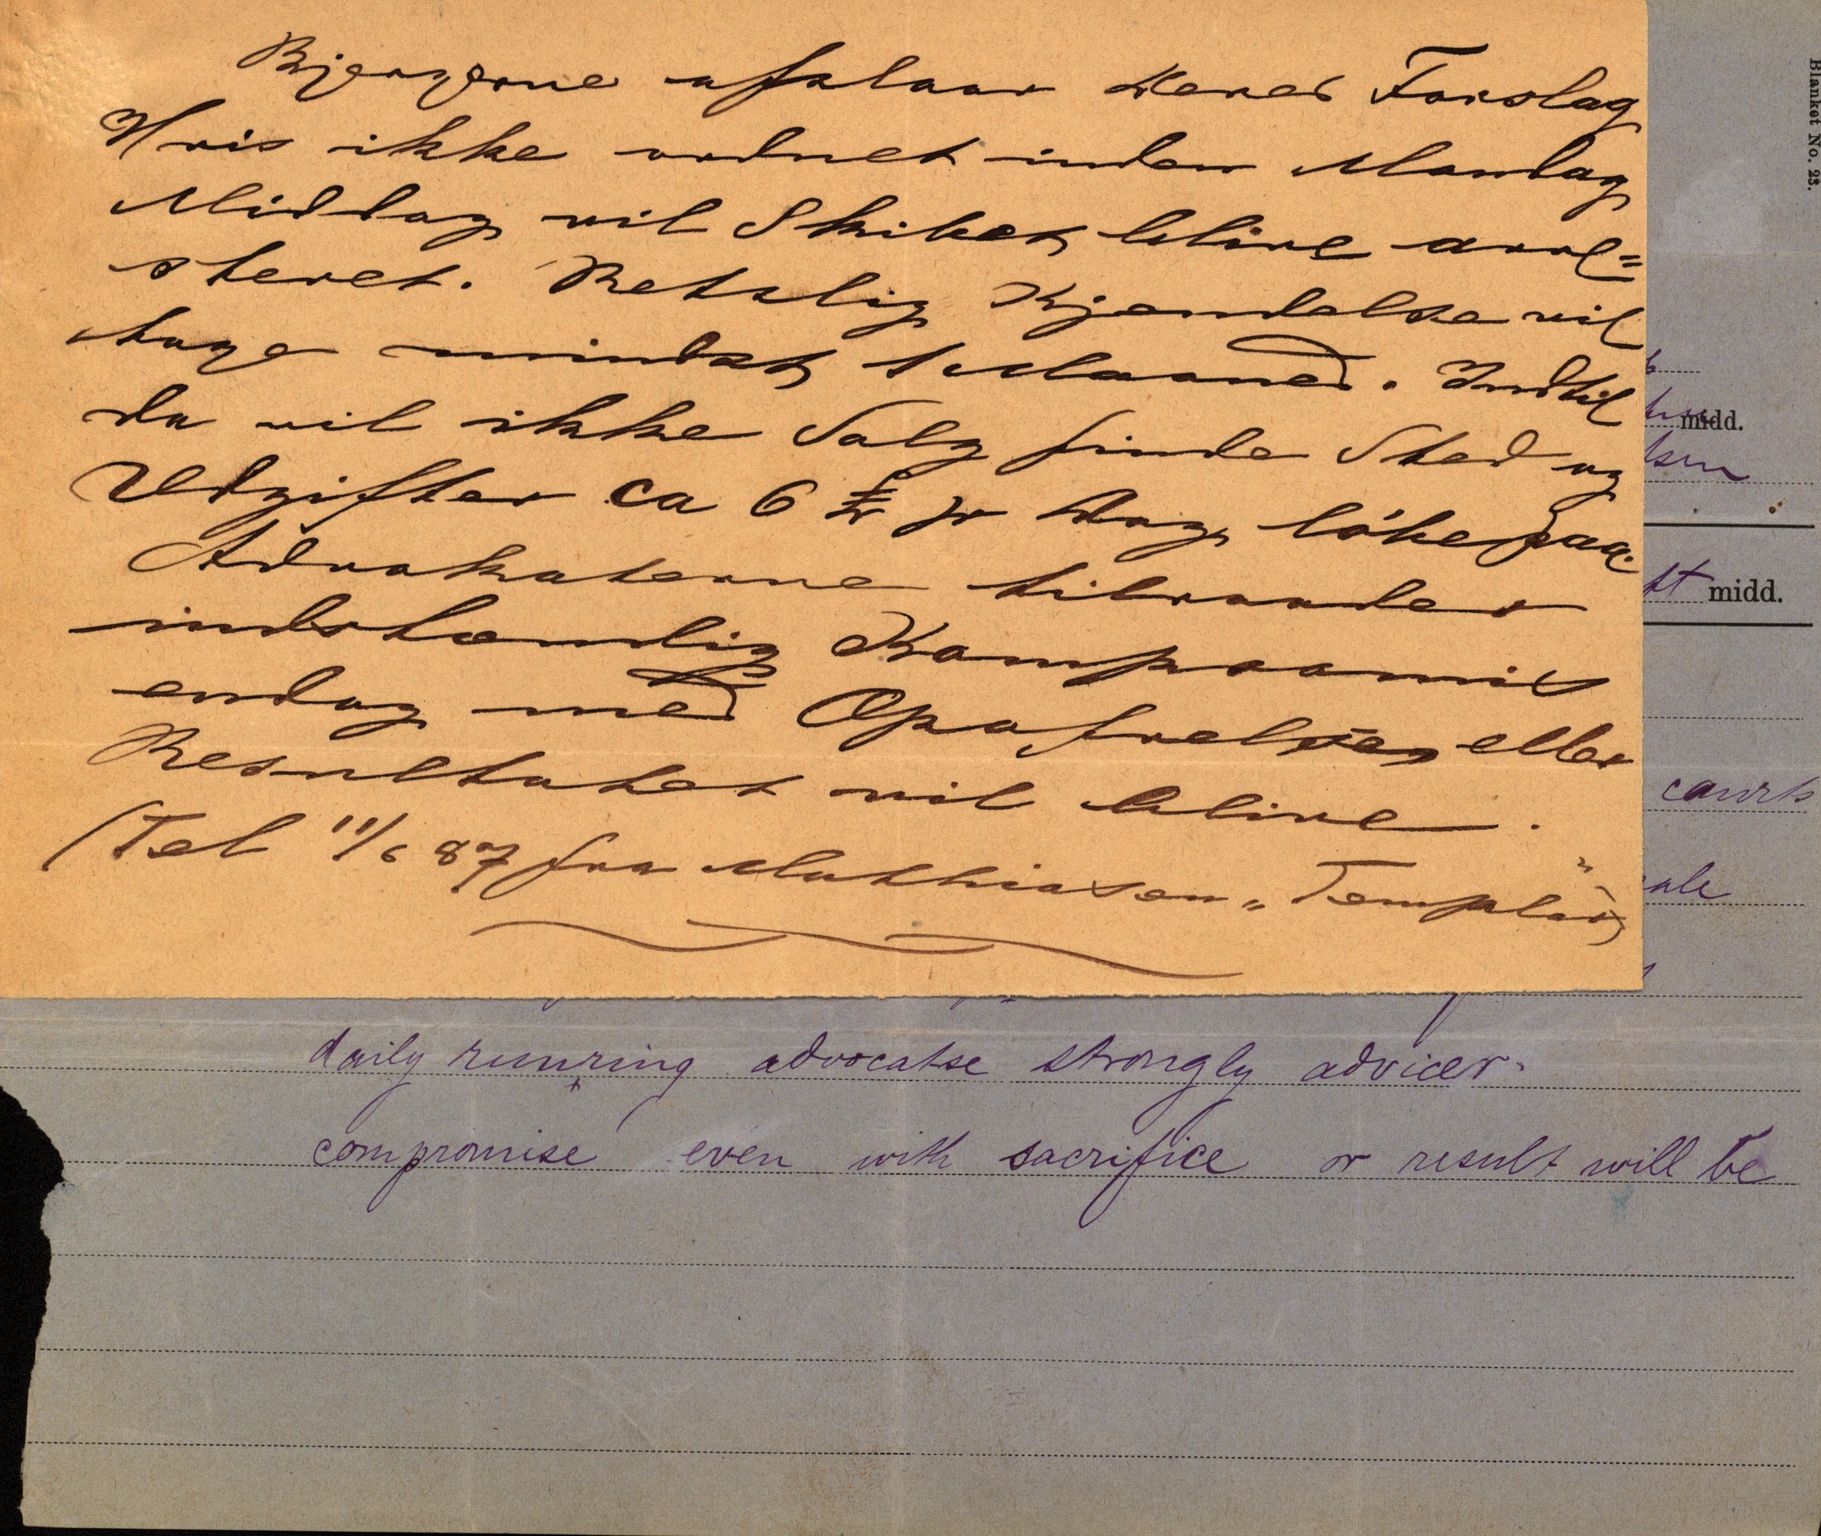 Bjergerne afslaar Deres Forslag
Hvis ikke ordnet inden Mandag
Middag vil Skibet blive arre=
steret. Retslig Kjendelse vil
tage mindst 1 Maaned. Indtil
da vil ikke Salg finde Sted og
Udgifter ca 6 £ pr Dag løbe paa.
Advokaterne tilraader
indstændig Kompromis
endog med Opofrelser eller
Resultatet vil blive .
(Tel 11/6 87 fra Mathiasen „Templar")
Blanket No. 23.
midd.
midd.
courts
daily running advocatse strongly advicer.
compromise even with sacrifice or result will be